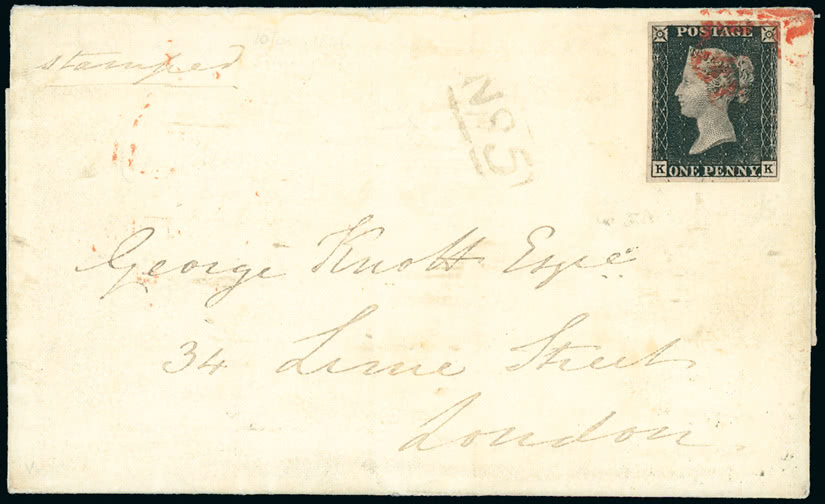 stamped
No 5
POSTAGE
K ONE PENNY K
George Knott Esqre
34 Lime Street
London